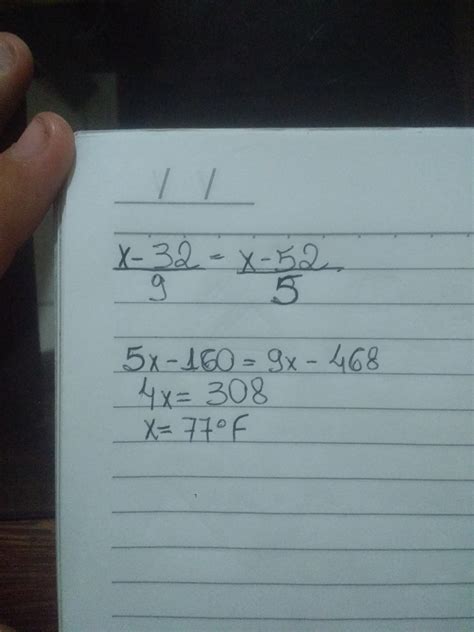 / /
x-32 = x-52
9 5
5x-160=9x-468
4x=308
x=77°F